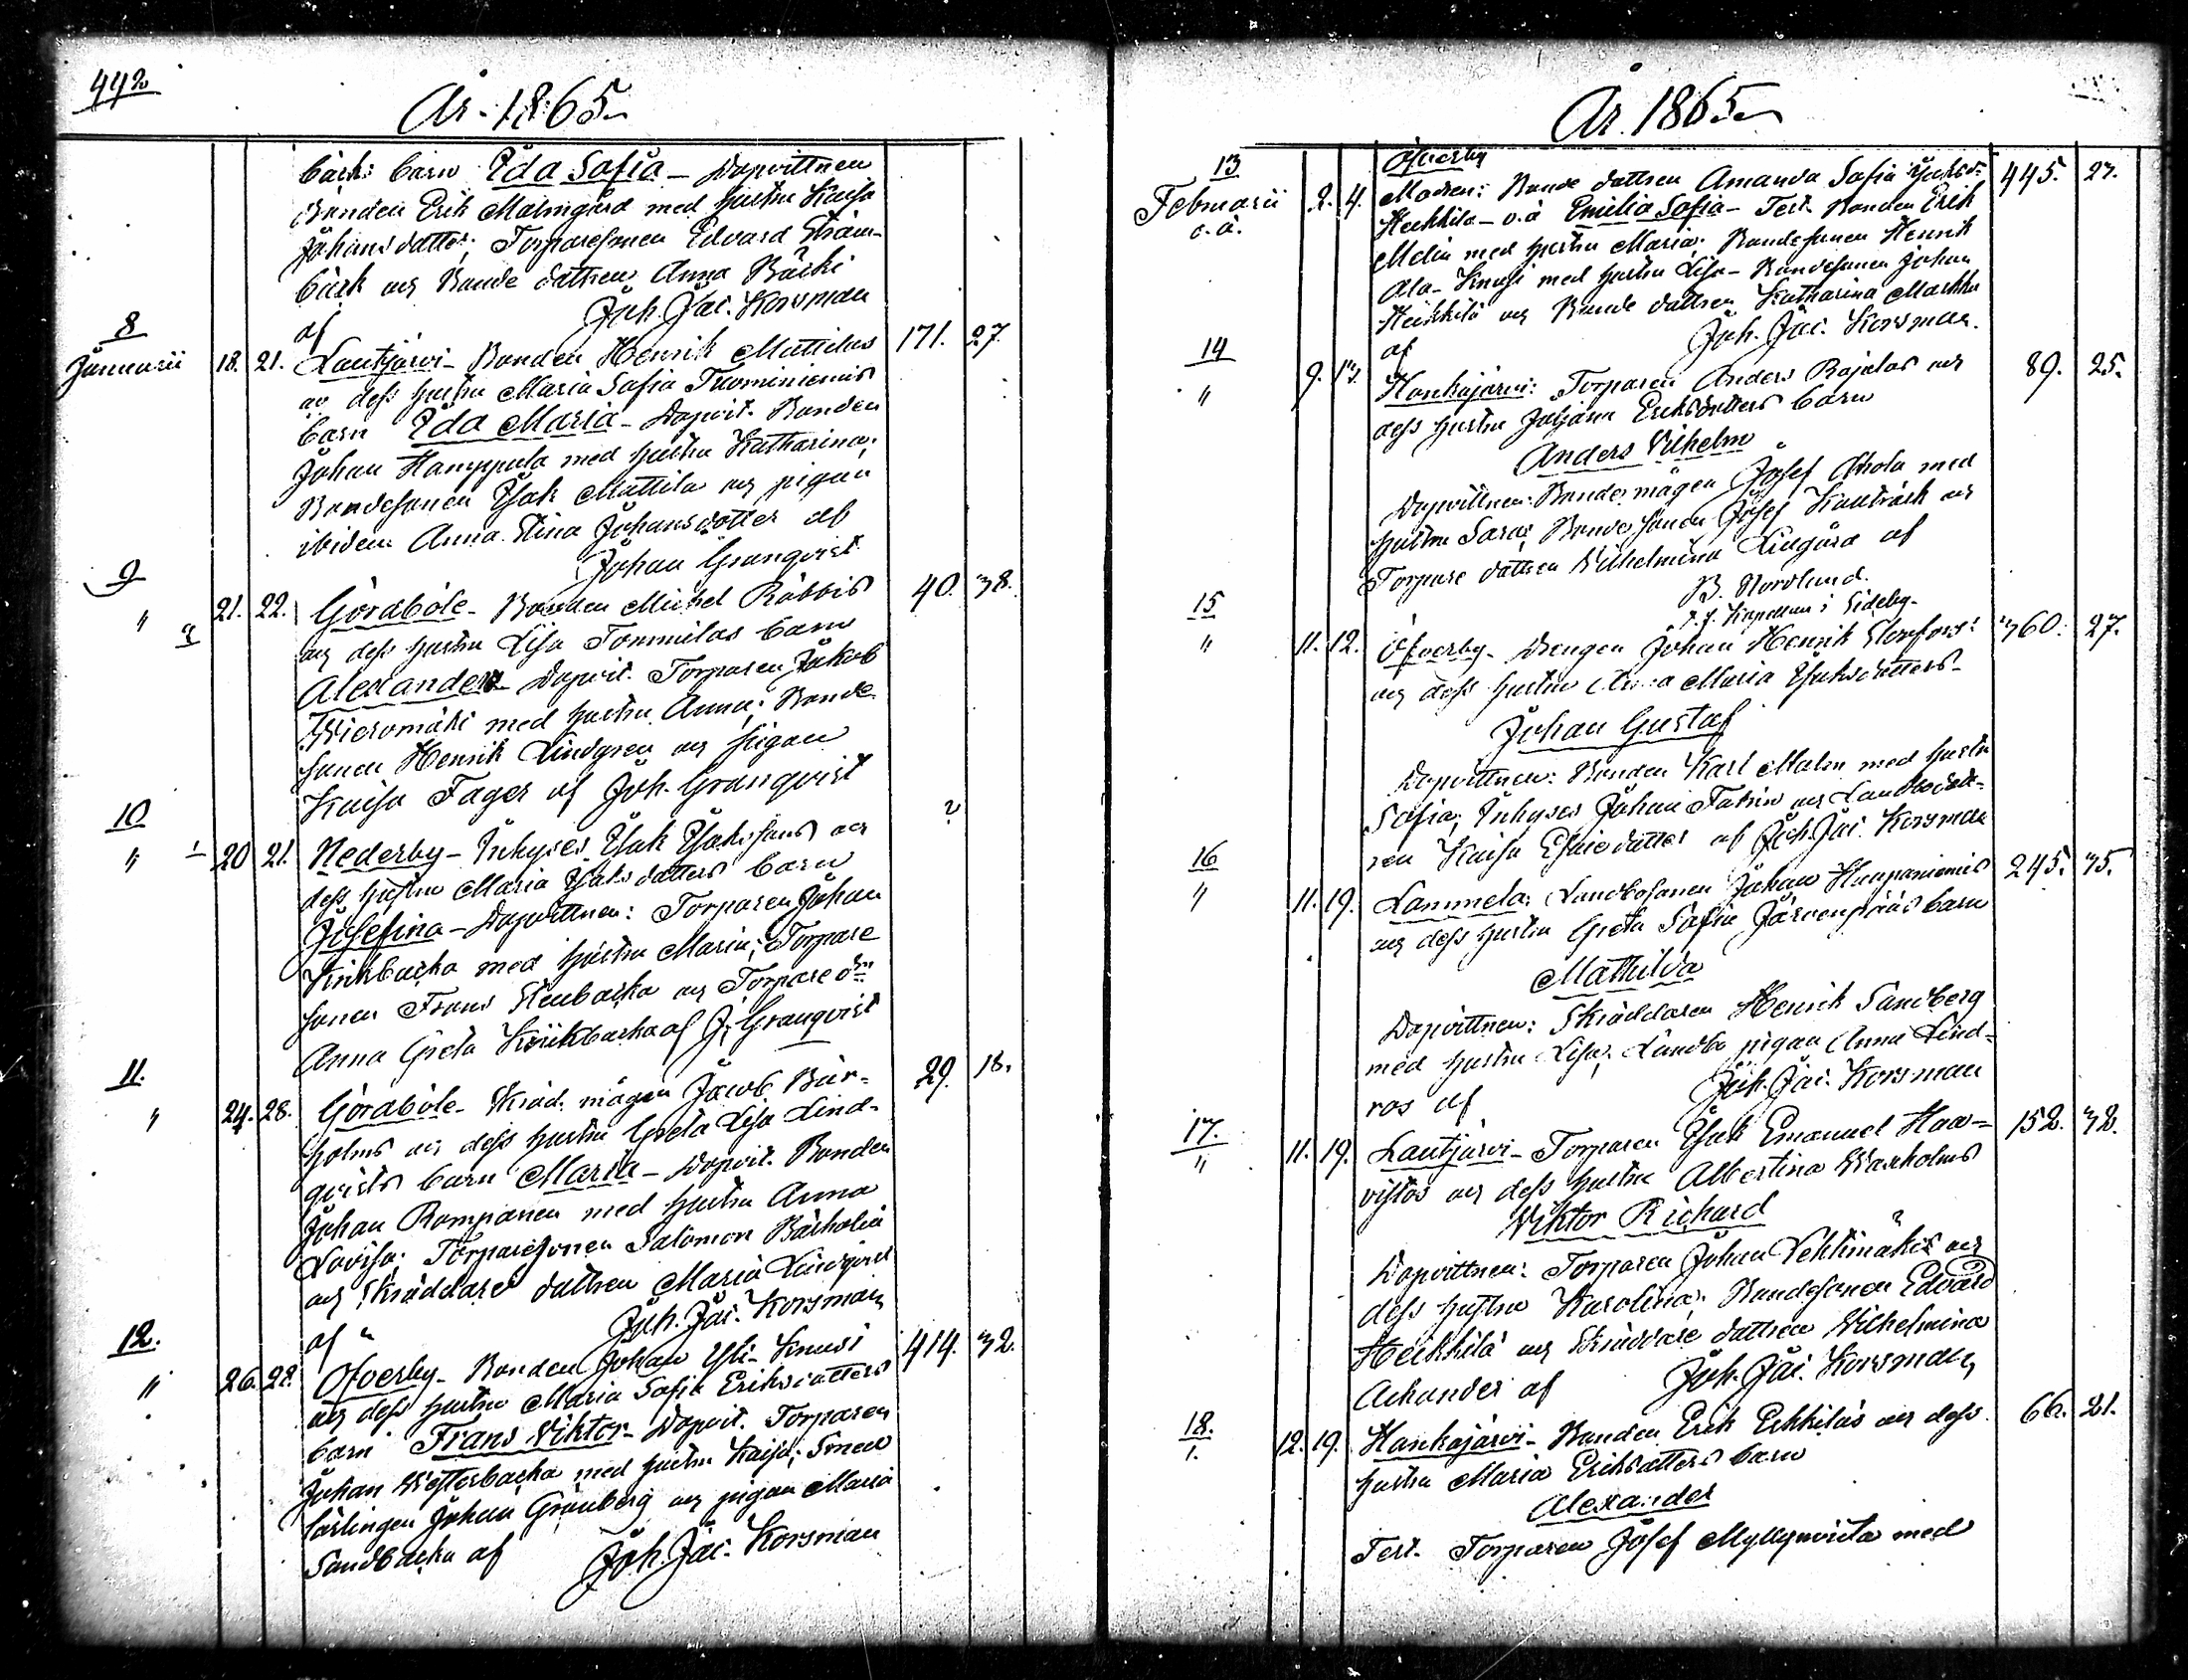 442
År 1865
bäck: barn Ida Sofia – Dopvittnen
Bonden Erik Malmgård med hustru Kaisa
Johansdotter; Torparesonen Edvard Ström-
bäck och Bonde dottren Anna Bäcki
af Joh. Jac. Korsman
8
Januarii 18. 21. Lautjärvi – Bonden Henrik Mattilas 171. 27.
och dess hustru Maria Sofia Tuominiemis
barn Ida Maria – Dopvit. Bonden
Johan Hamppula med hustru Katharina;
Bondesonen Isak Mattila och pigan
ibidem Anna Stina Johansdotter af
Johan Granqvist
9
" 21. 22. Gördböle – Bonden Michel Räbbis 40. 38.
och dess hustru Lisa Tommilas barn
Alexander – Dopvit. Torparen Jakob
Wieromäki med hustru Anna; Bonde
sonen Henrik Lindgren och pigan
Kaisa Fager af Joh. Granqvist
10
" 20 21. Nederby – Inhyses Isak Isaksons och ?
dess hustru Maria Isaksdotters barn
Josefina – Dopvittnen: Torparen Johan
Krikbacka med hustru Maria; Torpare
sonen Frans Stenbacka och Torpare d:n
Anna Greta Krikbacka af J. Granqvist
11.
" 24. 28. Gördböle – Skräd. mågen Jacob Bär- 29. 18.
holms och dess hustru Greta Lisa Lind-
qvists barn Maria – Dopvit. Bonden
Johan Rompanen med hustru Anna
Lovisa; Torparesonen Salomon
och Skräddare dottren Maria Lindqvist
af Joh. Jac. Korsman
12.
" 26. 28. Öfverby – Bonden Johan Yli-Knusi 414. 32.
och dess hustru Maria Sofia Eriksdotters
barn Frans Viktor – Dopvit. Torparen
Johan Westerbacka med hustru Kaisa; Smed
lärlingen Johan Grönberg och pigan Maria
Sandbacka af Joh. Jac. Korsman
År 1865
13
Februarii 2. 4. Öfverby 445. 27.
o.ä. Modren: Bonde dottren Amanda Sofia Jakobsd:
Heikkilä – o.ä Emilia Sofia – Test. Bonden Erik
Melin med hustru Maria; Bondesonen Henrik
Ala-Knusi med hustru Lisa – Bondesonen Johan
Heikkilä och Bonde dottren Katharina Markku
af Joh. Jac. Korsman.
14
" 9. 13. Honkajärvi: Torparen Anders Rajalas och 89. 25.
dess hustru Johanna Eriksdotters barn
Anders Vilhelm
Dopvittnen: Bonde mågen Josef Ahola med
hustru Sara; Bonde sonen Josef och
Torpare dottren Wilhelmina Lillgård af
B. Nordlund.
t.f. Kapellan i Sideby.
15
" 11. 12. Öfverby – Drengen Johan Henrik Storfors: 360. 27.
och dess hustru Anna Maria Isaksdotters
Johan Gustaf
Dopvittnen: Bonden Karl Malm med hustru
Sofia; Inhyses Johan och Landbodott-
ren Kaisa Esaiedotter af Joh. Jac. Korsman
16
" 11. 19. Lammela: Landbosonen Johan Haapaniemis 245. 35.
och dess hustru Greta Sofia Järvenpääs barn
Mathilda
Dopvittnen: Skräddaren Henrik Sandberg
med hustru Lisa; Landbo pigan Anna Lind-
ros af Joh. Jac. Korsman
17.
" 11. 19. Lautjärvi – Torparen Isak Emanuel Haa- 152. 32.
vistos och dess hustru Albertina Waxholms
Viktor Richard
Dopvittnen: Torparen Johan Lehtimäki och
dess hustru Karolina; Bondesonen Edvard
Heikkilä och Skräddare dottren Vilhelmina
Achander af Joh. Jac. Korsman
18.
12. 19. Honkajärvi – Bonden Erik Erkkiläs och dess 66. 21.
hustru Maria Eriksdotters barn
Alexander
Test. Torparen Josef Myllyviita med